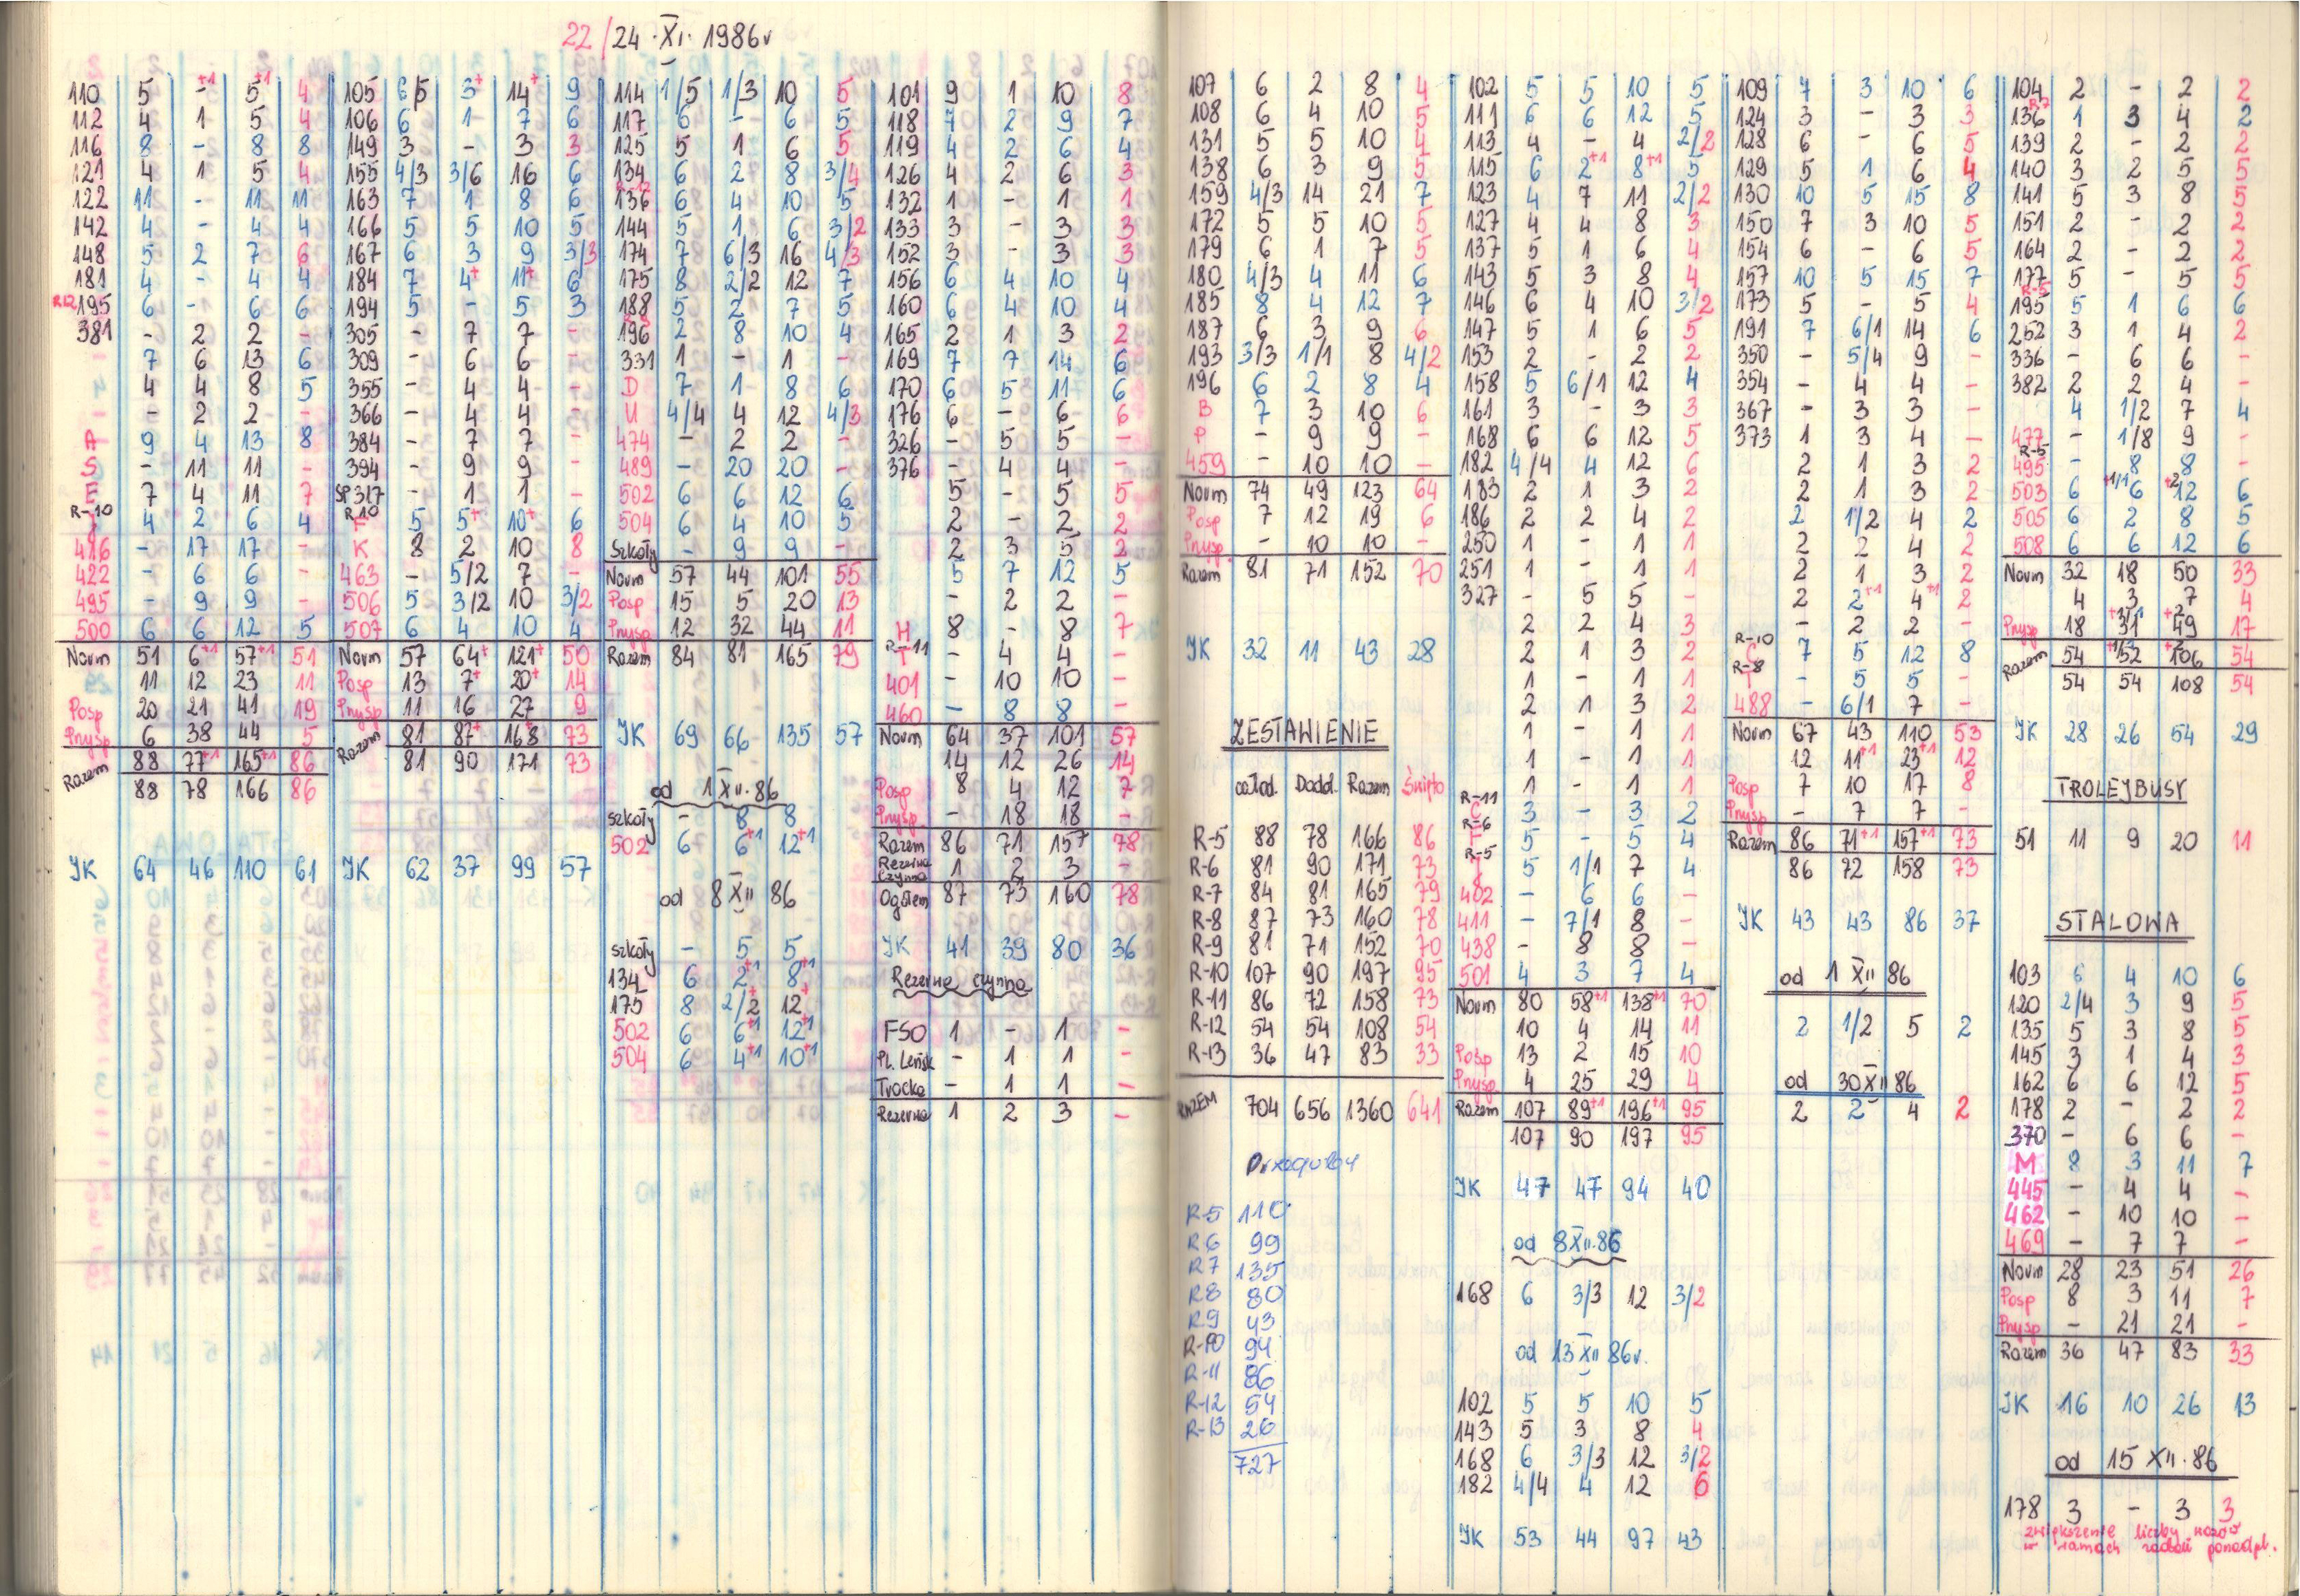 22/24·XI·1986r
110 5 - +1 5 +1 4
112 4 1 5 4
116 8 - 8 8
121 4 1 5 4
122 11 - 11 11
142 4 - 4 4
148 5 2 7 6
181 4 - 4 4
R12 195 6 - 6 6
381 - 2 2 -
7 6 13 6
4 4 8 5
- 2 2 -
A 9 4 13 8
S - 11 11 -
E 7 4 11 7
R-10
4 2 6 4
416 - 17 17 -
422 - 6 6 -
495 - 9 9 -
500 6 6 12 5
Norm 51 6+1 57+1 51
11 12 23 11
Posp 20 21 41 19
Przysp 6 38 44 5
Razem 88 77+1 165+1 86
88 78 166 86
JK 64 46 110 61
105 6/5 3+ 14+ 9
106 6 1 7 6
149 3 - 3 3
155 4/3 3/6 16 6
163 7 1 8 6
166 5 5 10 5
167 6 3 9 3/3
184 7 4+ 11+ 6
194 5 - 5 3
305 - 7 7 -
309 - 6 6 -
355 - 4 4 -
366 - 4 4 -
384 - 7 7 -
394 - 9 9 -
SP317 - 1 1 -
R10
F 5 5+ 10+ 6
K 8 2 10 8
463 - 5/2 7 -
506 5 3/2 10 3/2
507 6 4 10 4
Norm 57 64+ 121+ 50
Posp 13 7+ 20+ 14
Przysp 11 16 27 9
Razem 81 87+ 168 73
81 90 171 73
JK 62 37 99 57
114 1/5 1/3 10 5
117 6 - 6 5
125 5 1 6 5
134 6 2 8 3/4
R-12
136 6 4 10 5
144 5 1 6 3/2
174 7 6/3 16 4/3
175 8 2/2 12 7
188 5 2 7 5
196 2 8 10 4
331 1 - 1 -
D 7 1 8 6
U 4/4 4 12 4/3
474 - 2 2 -
489 - 20 20 -
502 6 6 12 6
504 6 4 10 5
Szkoły - 9 9 -
Norm 57 44 101 55
Posp 15 5 20 13
Przysp 12 32 44 11
Razem 84 81 165 79
JK 69 66 135 57
od 1 XII·86
szkoły - 8 8
502 6 6+1 12+1
od 8 XII 86
szkoły - 5 5
134 6 2+1 8+1
175 8 2/2+ 12+
502 6 6+1 12+1
504 6 4+1 10+1
101 9 1 10 8
118 7 2 9 7
119 4 2 6 4
126 4 2 6 3
132 1 - 1 1
133 3 - 3 3
152 3 - 3 3
156 6 4 10 4
160 6 4 10 4
165 2 1 3 2
169 7 7 14 6
170 6 5 11 6
176 6 - 6 6
326 - 5 5 -
376 - 4 4 -
5 - 5 5
2 - 2 2
2 3 5 2
5 7 12 5
- 2 2 -
H 8 - 8 7
R-11
T - 4 4 -
401 - 10 10 -
460 - 8 8 -
Norm 64 37 101 57
14 12 26 14
Posp 8 4 12 7
Przysp - 18 18 -
Razem 86 71 157 78
Rezerwa czynna 1 2 3 -
Ogółem 87 73 160 78
JK 41 39 80 36
Rezerwa czynna
FSO 1 - 1 -
Pl. Leńsk - 1 1 -
Trocka - 1 1 -
Rezerwa 1 2 3 -
107 6 2 8 4
108 6 4 10 5
131 5 5 10 4
138 6 3 9 5
159 4/3 14 21 7
172 5 5 10 5
179 6 1 7 5
180 4/3 4 11 6
185 8 4 12 7
187 6 3 9 6
193 3/3 1/1 8 4/2
196 6 2 8 4
B 7 3 10 6
P - 9 9 -
459 - 10 10 -
Norm 74 49 123 64
Posp 7 12 19 6
Przysp - 10 10 -
Razem 81 71 152 70
JK 32 11 43 28
ZESTAWIENIE
całod. Dodd. Razem Święto
R-5 88 78 166 86
R-6 81 90 171 73
R-7 84 81 165 79
R-8 87 73 160 78
R-9 81 71 152 70
R-10 107 90 197 95
R-11 86 72 158 73
R-12 54 54 108 54
R-13 36 47 83 33
RAZEM 704 656 1360 641
Przeguby
R-5 110
R6 99
R7 135
R8 80
R9 43
R-10 94
R-11 86
R-12 54
R-13 26
727
102 5 5 10 5
111 6 6 12 5
113 4 - 4 2/2
115 6 2+1 8+1 5
123 4 7 11 2/2
127 4 4 8 3
137 5 1 6 4
143 5 3 8 4
146 6 4 10 3/2
147 5 1 6 5
153 2 - 2 2
158 5 6/1 12 4
161 3 - 3 3
168 6 6 12 5
182 4/4 4 12 6
183 2 1 3 2
186 2 2 4 2
250 1 - 1 1
251 1 - 1 1
327 - 5 5 -
2 2 4 3
2 1 3 2
1 - 1 1
2 1 3 2
1 - 1 1
1 - 1 1
1 - 1 1
R-11
C 3 - 3 2
R-6
5 - 5 4
R-5
5 1/1 7 4
402 - 6 6 -
411 - 7/1 8 -
438 - 8 8 -
501 4 3 7 4
Norm 80 58+1 138+1 70
10 4 14 11
Posp 13 2 15 10
Przysp 4 25 29 4
Razem 107 89+1 196+1 95
107 90 197 95
JK 47 47 94 40
od 8 XII·86
168 6 3/3 12 3/2
od 13 XII 86r.
102 5 5 10 5
143 5 3 8 4
168 6 3/3 12 3/2
182 4/4 4 12 6
JK 53 44 97 43
109 7 3 10 6
124 3 - 3 3
128 6 - 6 5
129 5 1 6 4
130 10 5 15 8
150 7 3 10 5
154 6 - 6 5
157 10 5 15 7
173 5 - 5 4
191 7 6/1 14 6
350 - 5/4 9 -
354 - 4 4 -
367 - 3 3 -
373 1 3 4 -
2 1 3 2
2 1 3 2
2 1/2 4 2
2 2 4 2
2 1 3 2
2 2+1 4+1 2
- 2 2 -
R-10
C 7 5 12 8
R-8
T - 5 5 -
488 - 6/1 7 -
Norm 67 43 110 53
12 11+1 23+1 12
Posp 7 10 17 8
Przysp - 7 7 -
Razem 86 71+1 157+1 73
86 72 158 73
JK 43 43 86 37
od 1 XII 86
2 1/2 5 2
od 30 XII 86
2 2 4 2
104 2 - 2 2
R7
136 1 3 4 2
139 2 - 2 2
140 3 2 5 5
141 5 3 8 5
151 2 - 2 2
164 2 - 2 2
177 5 - 5 5
R-5
195 5 1 6 6
252 3 1 4 2
336 - 6 6 -
382 2 2 4 -
4 1/2 7 4
477 - 1/8 9 -
R-5
495 - 8 8 -
503 6 +1/1 6 +2 12 6
505 6 2 8 5
508 6 6 12 6
Norm 32 18 50 33
4 3 7 4
Przysp 18 31 +2 49 17
Razem 54 52 +2 106 54
54 54 108 54
JK 28 26 54 29
TROLEJBUSY
51 11 9 20 11
STALOWA
103 6 4 10 6
120 2/4 3 9 5
135 5 3 8 5
145 3 1 4 3
162 6 6 12 5
178 2 - 2 2
370 - 6 6 -
M 8 3 11 7
445 - 4 4 -
462 - 10 10 -
469 - 7 7 -
Norm 28 23 51 26
Posp 8 3 11 7
Przysp - 21 21 -
Razem 36 47 83 33
JK 16 10 26 13
od 15 XII·86
178 3 - 3 3
zwiększenie liczby wozów
w ramach zadań ponadpl.